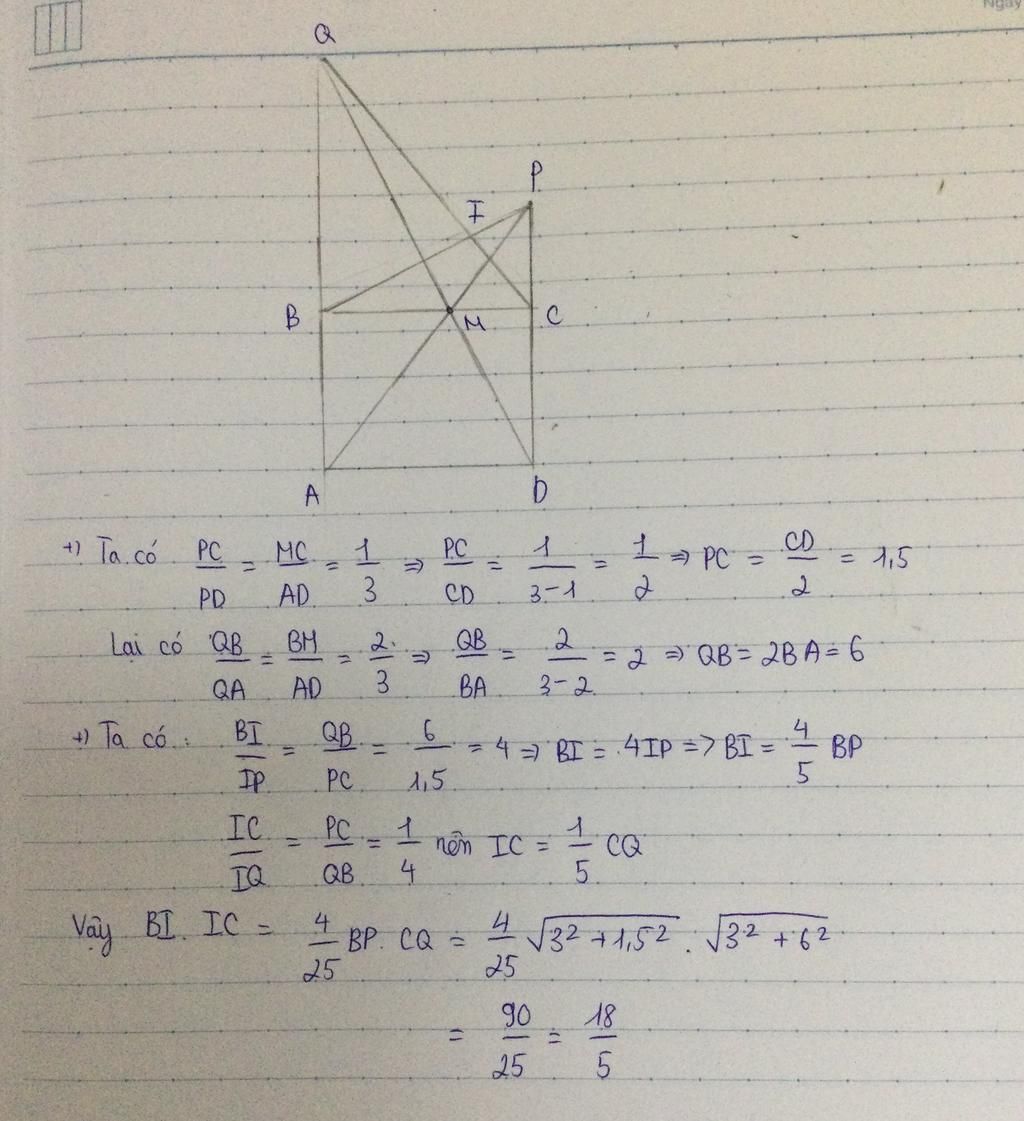 Ngày
Q
P
I
B
M
C
A
D
+) Ta có PC/PD = MC/AD = 1/3 => PC/CD = 1/(3-1) = 1/2 => PC = CD/2 = 1,5
Lại có QB/QA = BM/AD = 2/3 => QB/BA = 2/(3-2) = 2 => QB = 2BA = 6
+) Ta có: BI/IP = QB/PC = 6/1,5 = 4 => BI = 4IP => BI = 4/5 BP
IC/IQ = PC/QB = 1/4 nên IC = 1/5 CQ
Vậy BI. IC = 4/25 BP. CQ = 4/25 √(3² + 1,5²) . √(3² + 6²)
= 90/25 = 18/5